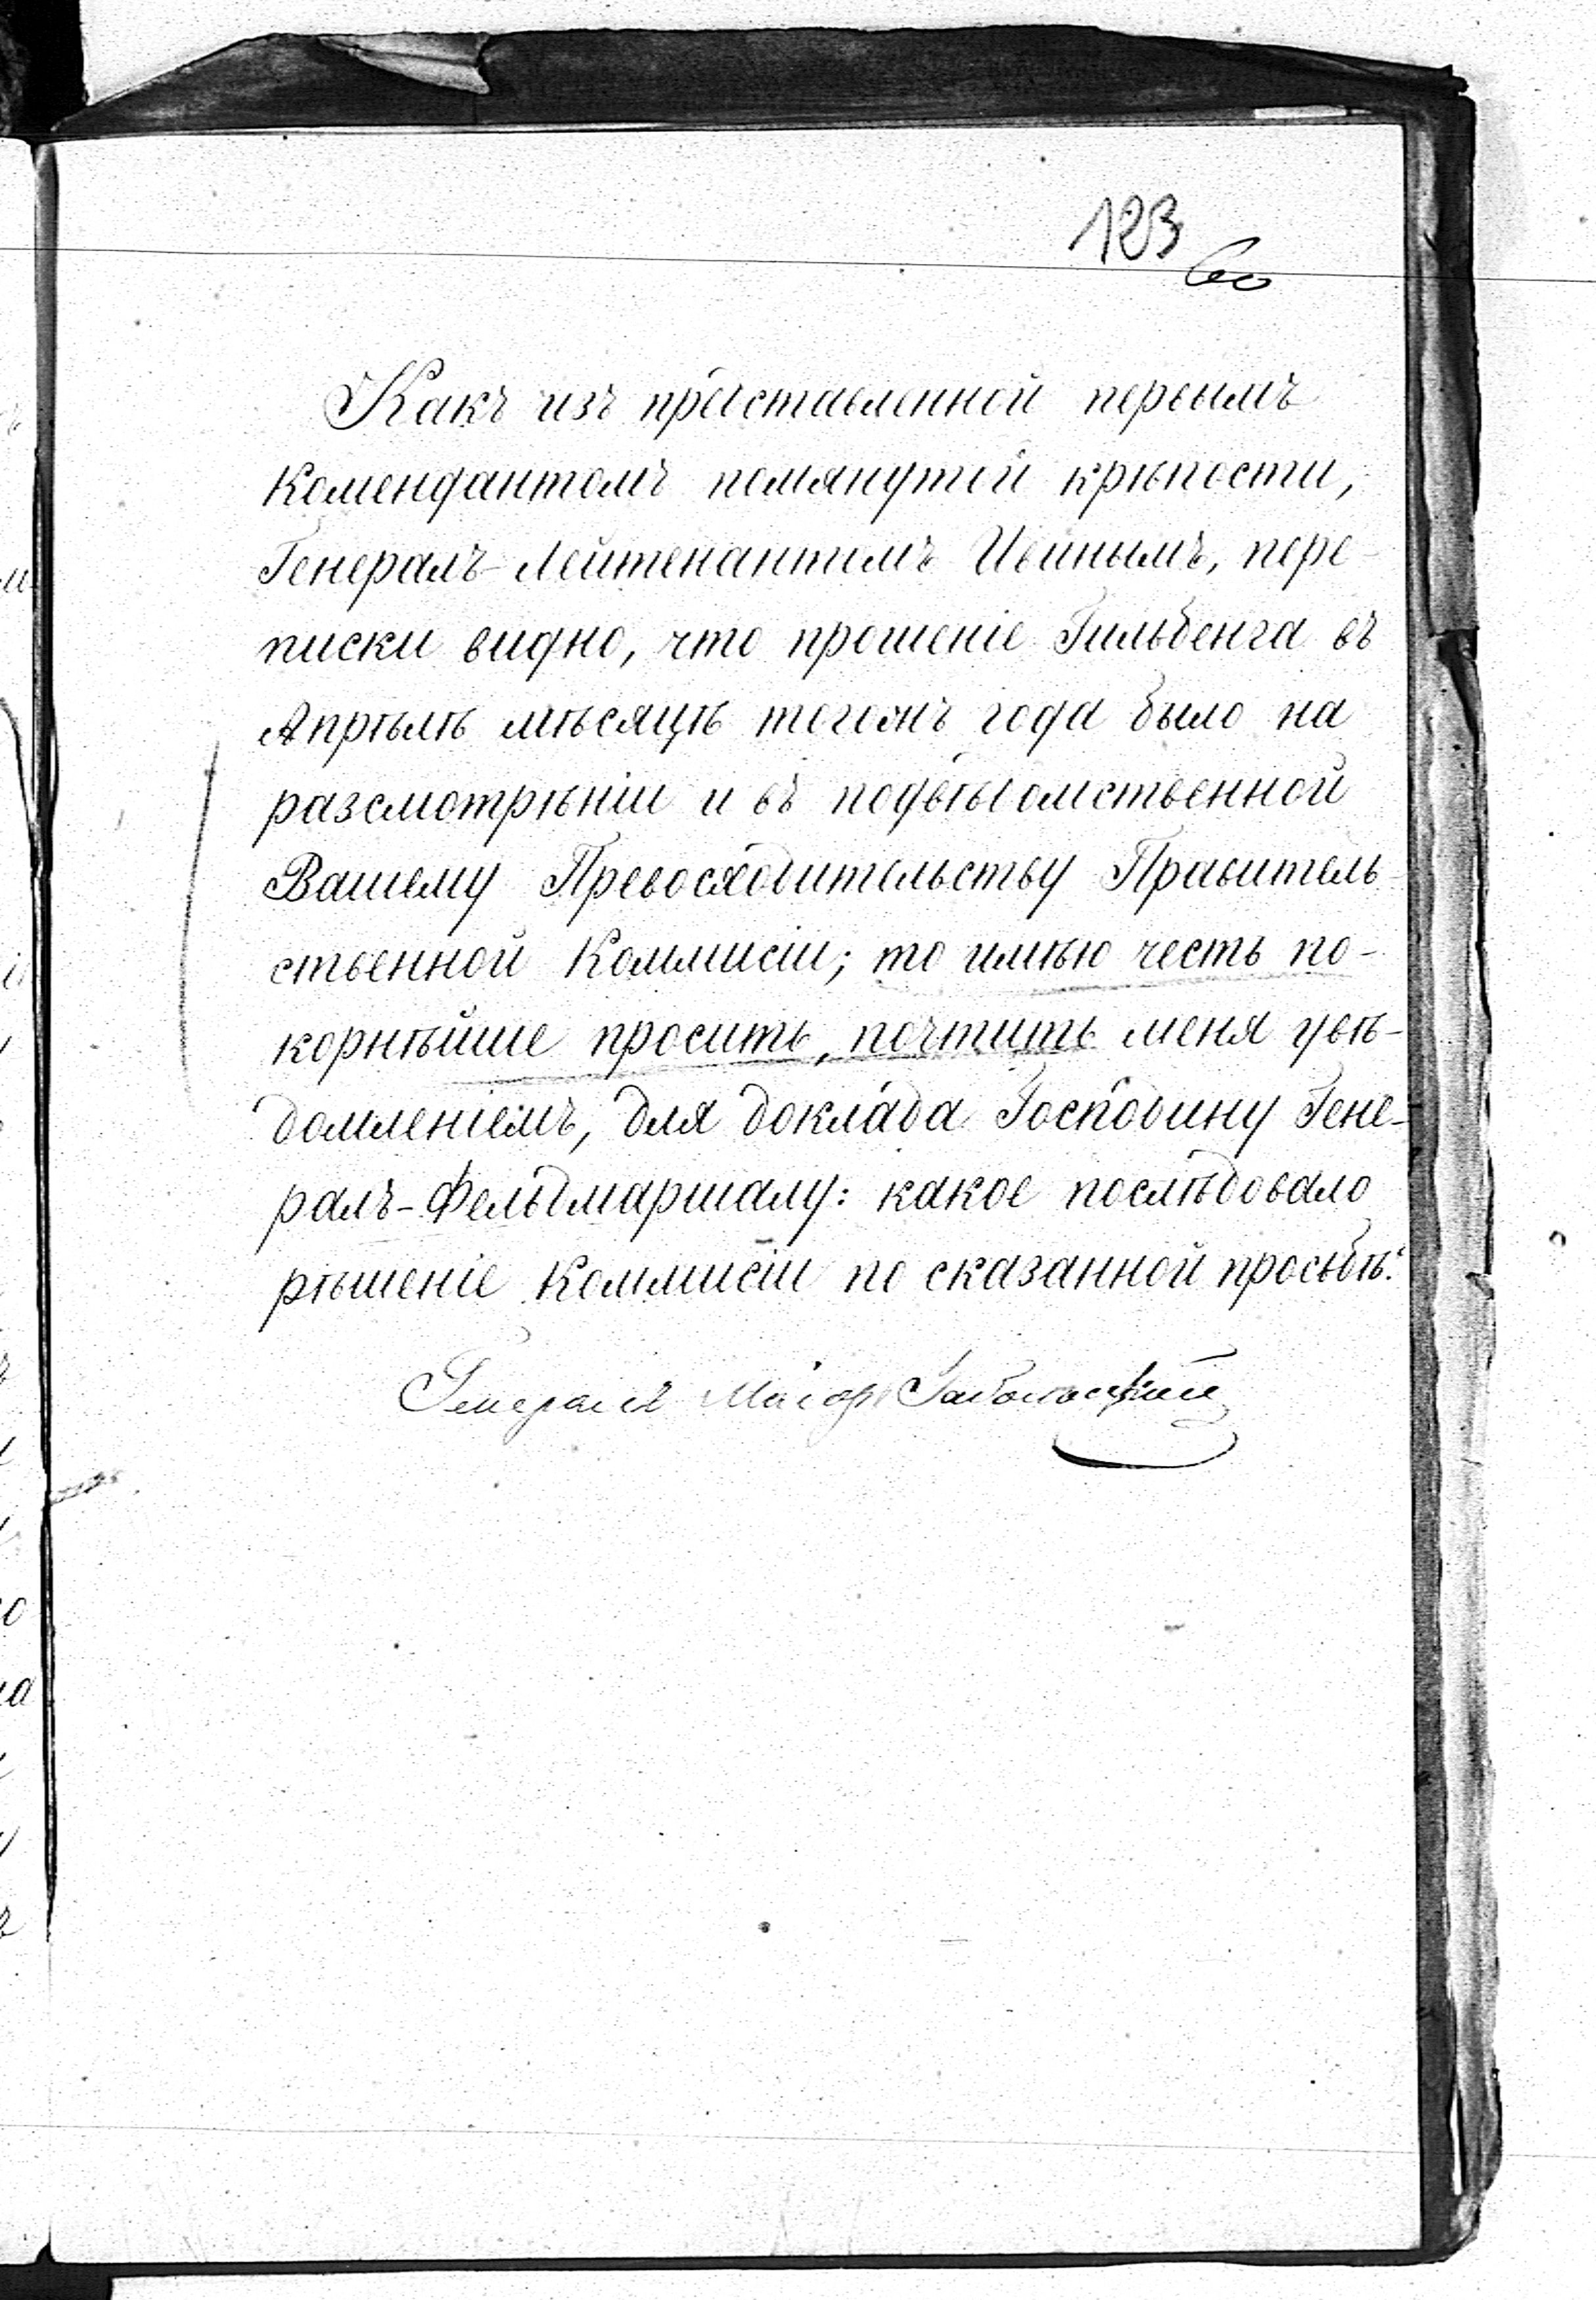 123
60
Какъ изъ представленной первымъ
Комендантомъ помянутой крѣпости,
Генералъ-Лейтенантомъ , пере-
писки видно, что прошеніе Гильбенга въ
Апрѣлѣ мѣсяцѣ тогожъ года было на
разсмотрѣніи и въ подвѣдомственной
Вашему Превосходительству Правитель-
ственной Коммисіи; то имѣю честь по-
корнѣйше просить, почтить меня увѣ-
домленіемъ, для доклада Господину Гене-
ралъ-Фельдмаршалу: какое послѣдовало
рѣшеніе Коммисіи по сказанной просьбѣ.
Генералъ Маіоръ